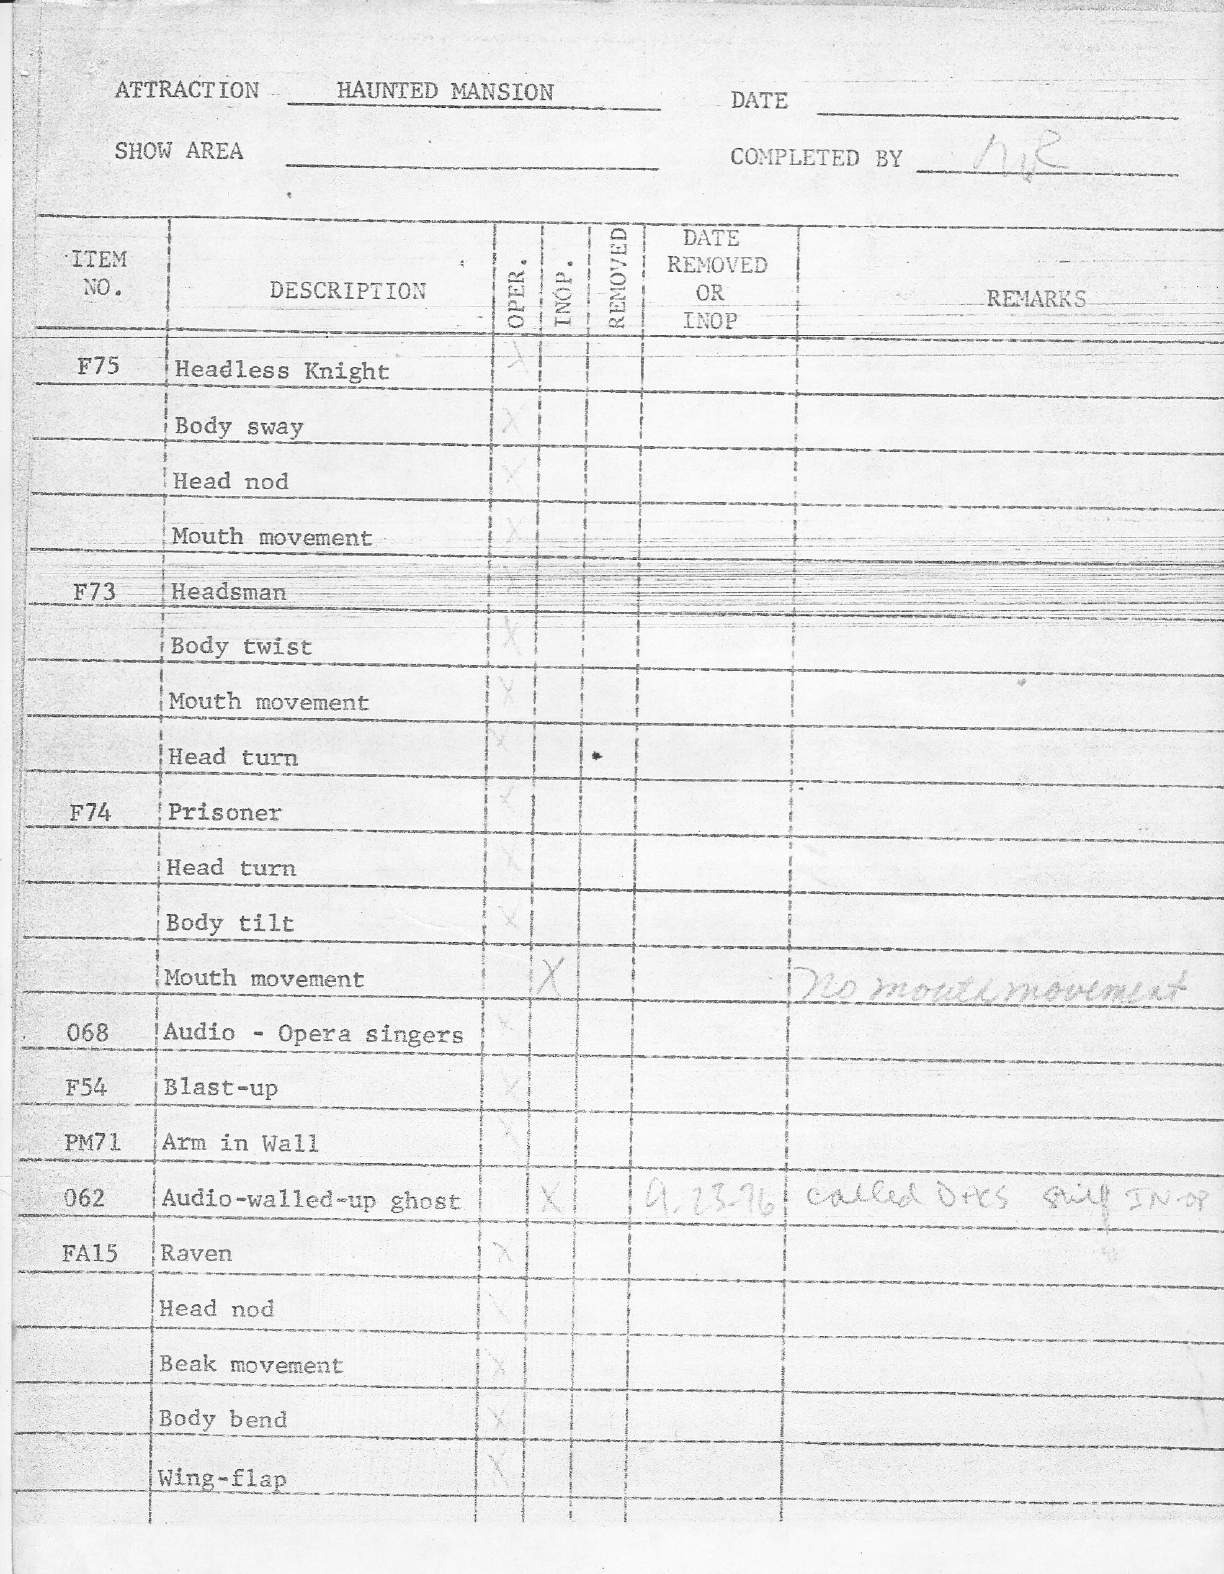 ATTRACTION HAUNTED MANSION DATE
SHOW AREA COMPLETED BY
ITEM NO. DESCRIPTION OPER. INOP. REMOVED DATE REMOVED OR INOP REMARKS
F75 Headless Knight X
Body sway X
Head nod X
Mouth movement X
F73 Headsman X
Body twist X
Mouth movement X
Head turn X
F74 Prisoner X
Head turn X
Body tilt X
Mouth movement X No mouth movement
068 Audio - Opera singers X
F54 Blast-up X
PM71 Arm in Wall X
062 Audio-walled-up ghost X 9.23.76 called IN-OP
FA15 Raven X
Head nod X
Beak movement X
Body bend X
Wing-flap X